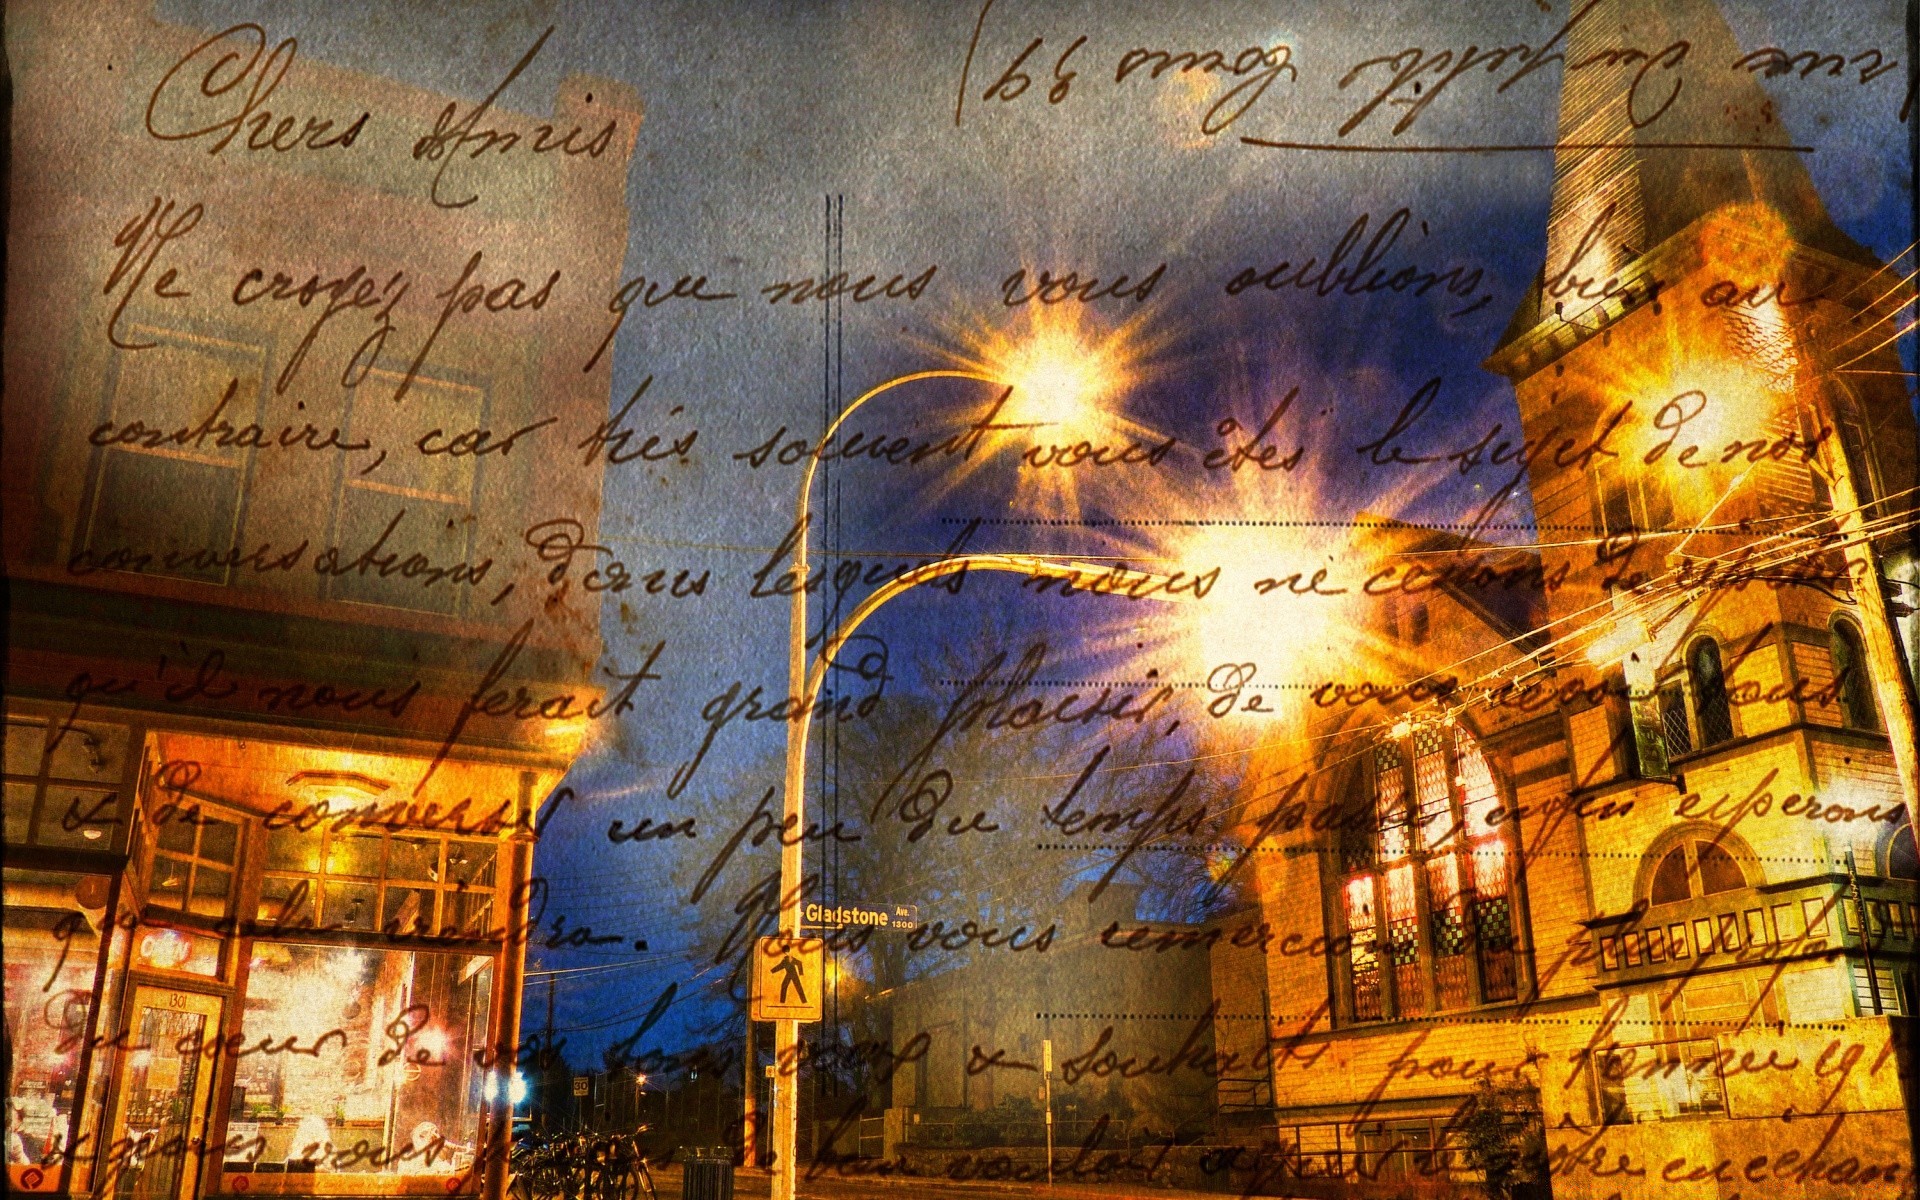 Chers Amis
Ne croyez pas que nous vous oublions, bien au
contraire, car très souvent vous êtes le sujet de nos
conversations, dans lesquels nous ne cessons de
qu'il nous ferait grand plaisir, de vous tous
& de converser un peu du temps passé, enfin esperons
que cela viendra. Nous vous remercions du plus profond
du cœur de vos bons vœux & souhaits pour l'année
& nous vous de bien vouloir notre en echan
rue du petit 39)
Gladstone Ave.
1300
1301
30